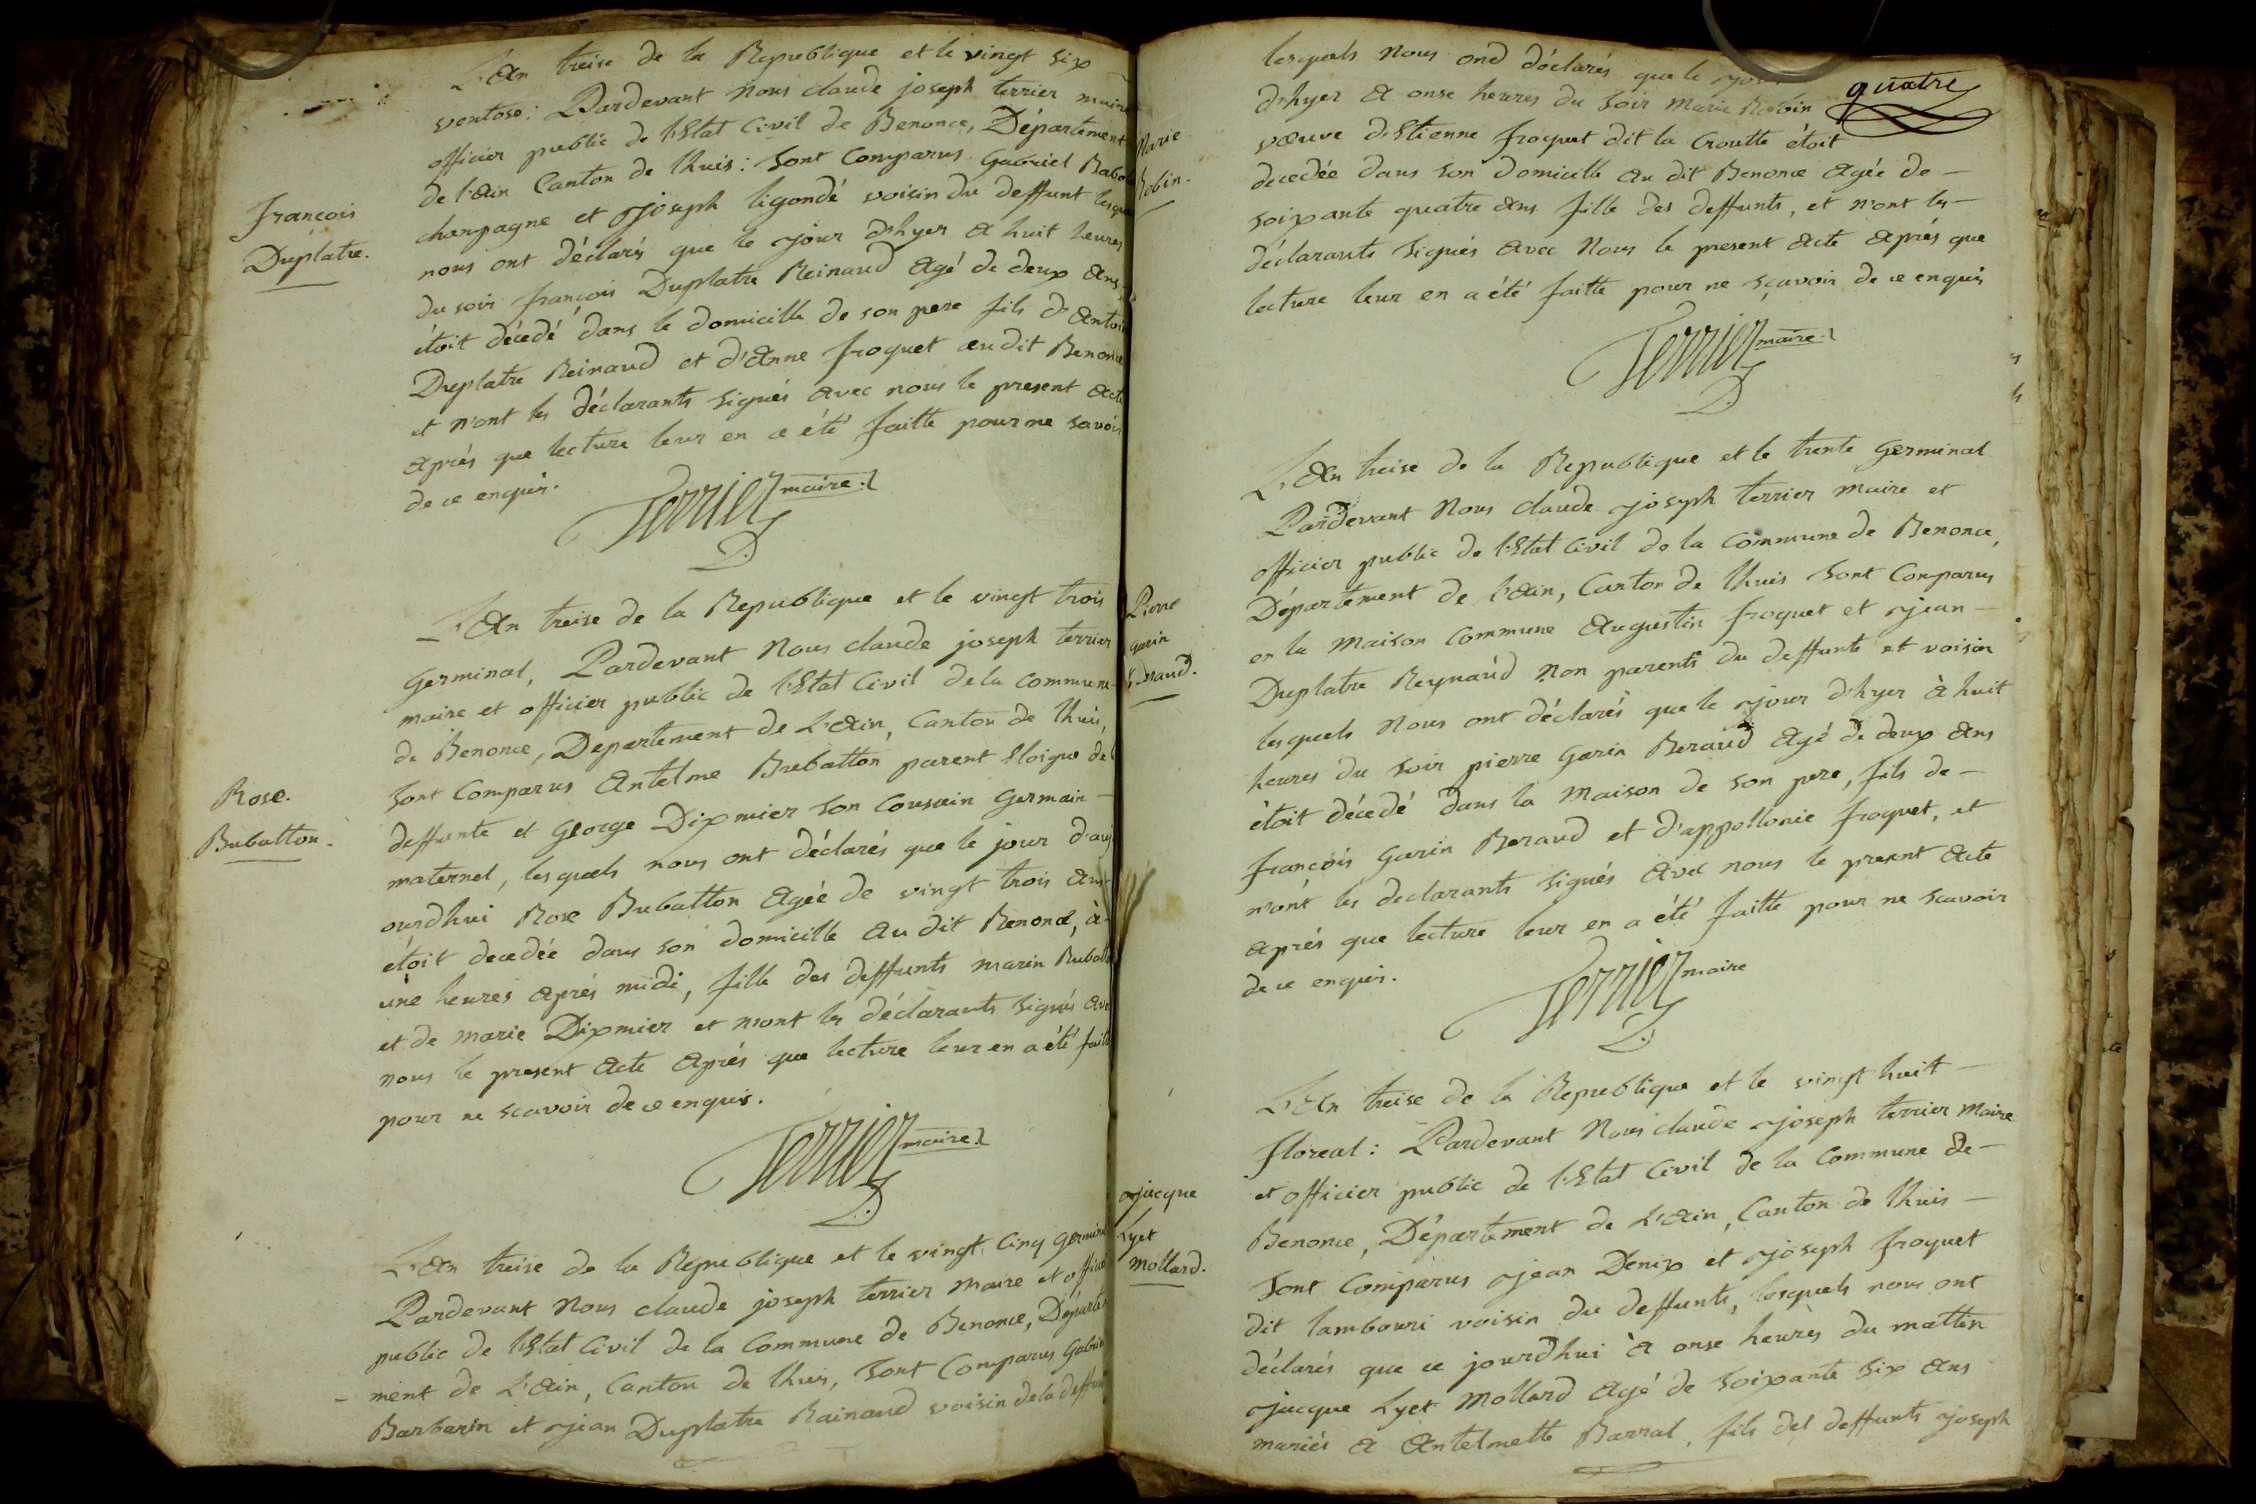 L'An treise de la Republique et le vingt six
ventose: Pardevant Nous claude joseph terrier maire
officier public de l'Etat Civil de Benonce, Département
de l'Ain Canton de lhuis: Sont Comparus Gabriel
champagne et joseph ligondé voisin du deffunt lesquels
nous ont déclarés que le jour d'hyer a huit heures
du soir françois Duplatre Reinaud Agé de deux Ans
étoit décedé dans le domicille de son pere fils d'Antoi
Duplatre Reinaud et d'Anne froquet au dit Benonce
et n'ont les déclarants signés avec nous le present Acte
Aprés que lecture leur en a été faitte pour ne savoir
de ce enquis.
françois
Duplatre.
Terrier maire
L'An treise de la Republique et le vingt trois
Germinal, Pardevant Nous claude joseph terrier
maire et officier public de l'Etat Civil de la commune
de Benonce, Departement de L'Ain, Canton de lhuis,
Sont Comparus Antelme Bubatton parent Eloigne de
deffunte et George Dixmier son Cousin Germain -
maternel, lesquels nous ont déclarés que le jour d'auj
ourdhui Rose Bubatton Agée de vingt trois Ans
étoit decedée dans son domicille Au dit Benonce, à
une heures Aprés midi, fille des deffunts marin Bubatto
et de marie Dixmier et n'ont les déclarants signés Ave
nous le present Acte Aprés que lecture leur en a été faitte
pour ne scavoir de ce enquis.
Rose.
Bubatton.
Terrier maire
L'An treise de la Republique et le vingt Cinq Germinal
Pardevant Nous claude joseph terrier Maire et officier
public de l'Etat Civil de la Commune de Benonce, Departe
- ment de L'Ain, Canton de lhuis, Sont Comparus Gabriel
Barbarin et jean Duplatre Rainaud voisin de la deffunte
quatre
lesquels Nous ond déclarés que le jour
d'hyer A onse heures du Soir Marie Robin
veuve d'Etienne froquet dit la Croutte étoit
decedée dans son domicille Au dit Benonce Agée de -
soixante quatre Ans fille des deffunts, et n'ont les -
déclarants signés Avec Nous le present Acte Aprés que
lecture leur en a été faitte pour ne sçavoir de ce enquis
Marie
Robin.
Terrier maire
L'An treise de la Republique et le trente Germinal
Pardevant Nous claude joseph terrier Maire et
officier public de l'Etat Civil de la Commune de Benonce,
Département de l'Ain, Canton de lhuis Sont Comparus
en la Maison Commune Augustin froquet et jean -
Duplatre Reynaud Non parents du deffunts et voisin
lesquels Nous ont déclarés que le jour d'hyer à huit
heures du soir pierre Garin Beraud Agé de deux Ans
étoit décedé dans la Maison de son pere, fils de -
françois Garin Beraud et d'appollonie froquet, et
n'ont les declarants signés Avec nous le present Acte
Aprés que lecture leur en a été faitte pour ne scavoir
de ce enquis.
Pierre
Garin
Beraud.
Terrier maire
L'An treise de la Republique et le vingt huitt -
floreal: Pardevant Nous claude joseph terrier Maire
et officier public de l'Etat Civil de la Commune de -
Benonce, Département de L'Ain, Canton de lhuis -
Sont Comparus jean Denix et joseph froquet
dit lambouri voisin du deffunts, lesquels nous ont
déclarés que ce jourdhui à onse heures du mattin
jacque Lyet Mollard Agé de Soixante Six Ans
mariés a Antelmette Barral, fils des deffunts joseph
jacque
Lyet
Mollard.